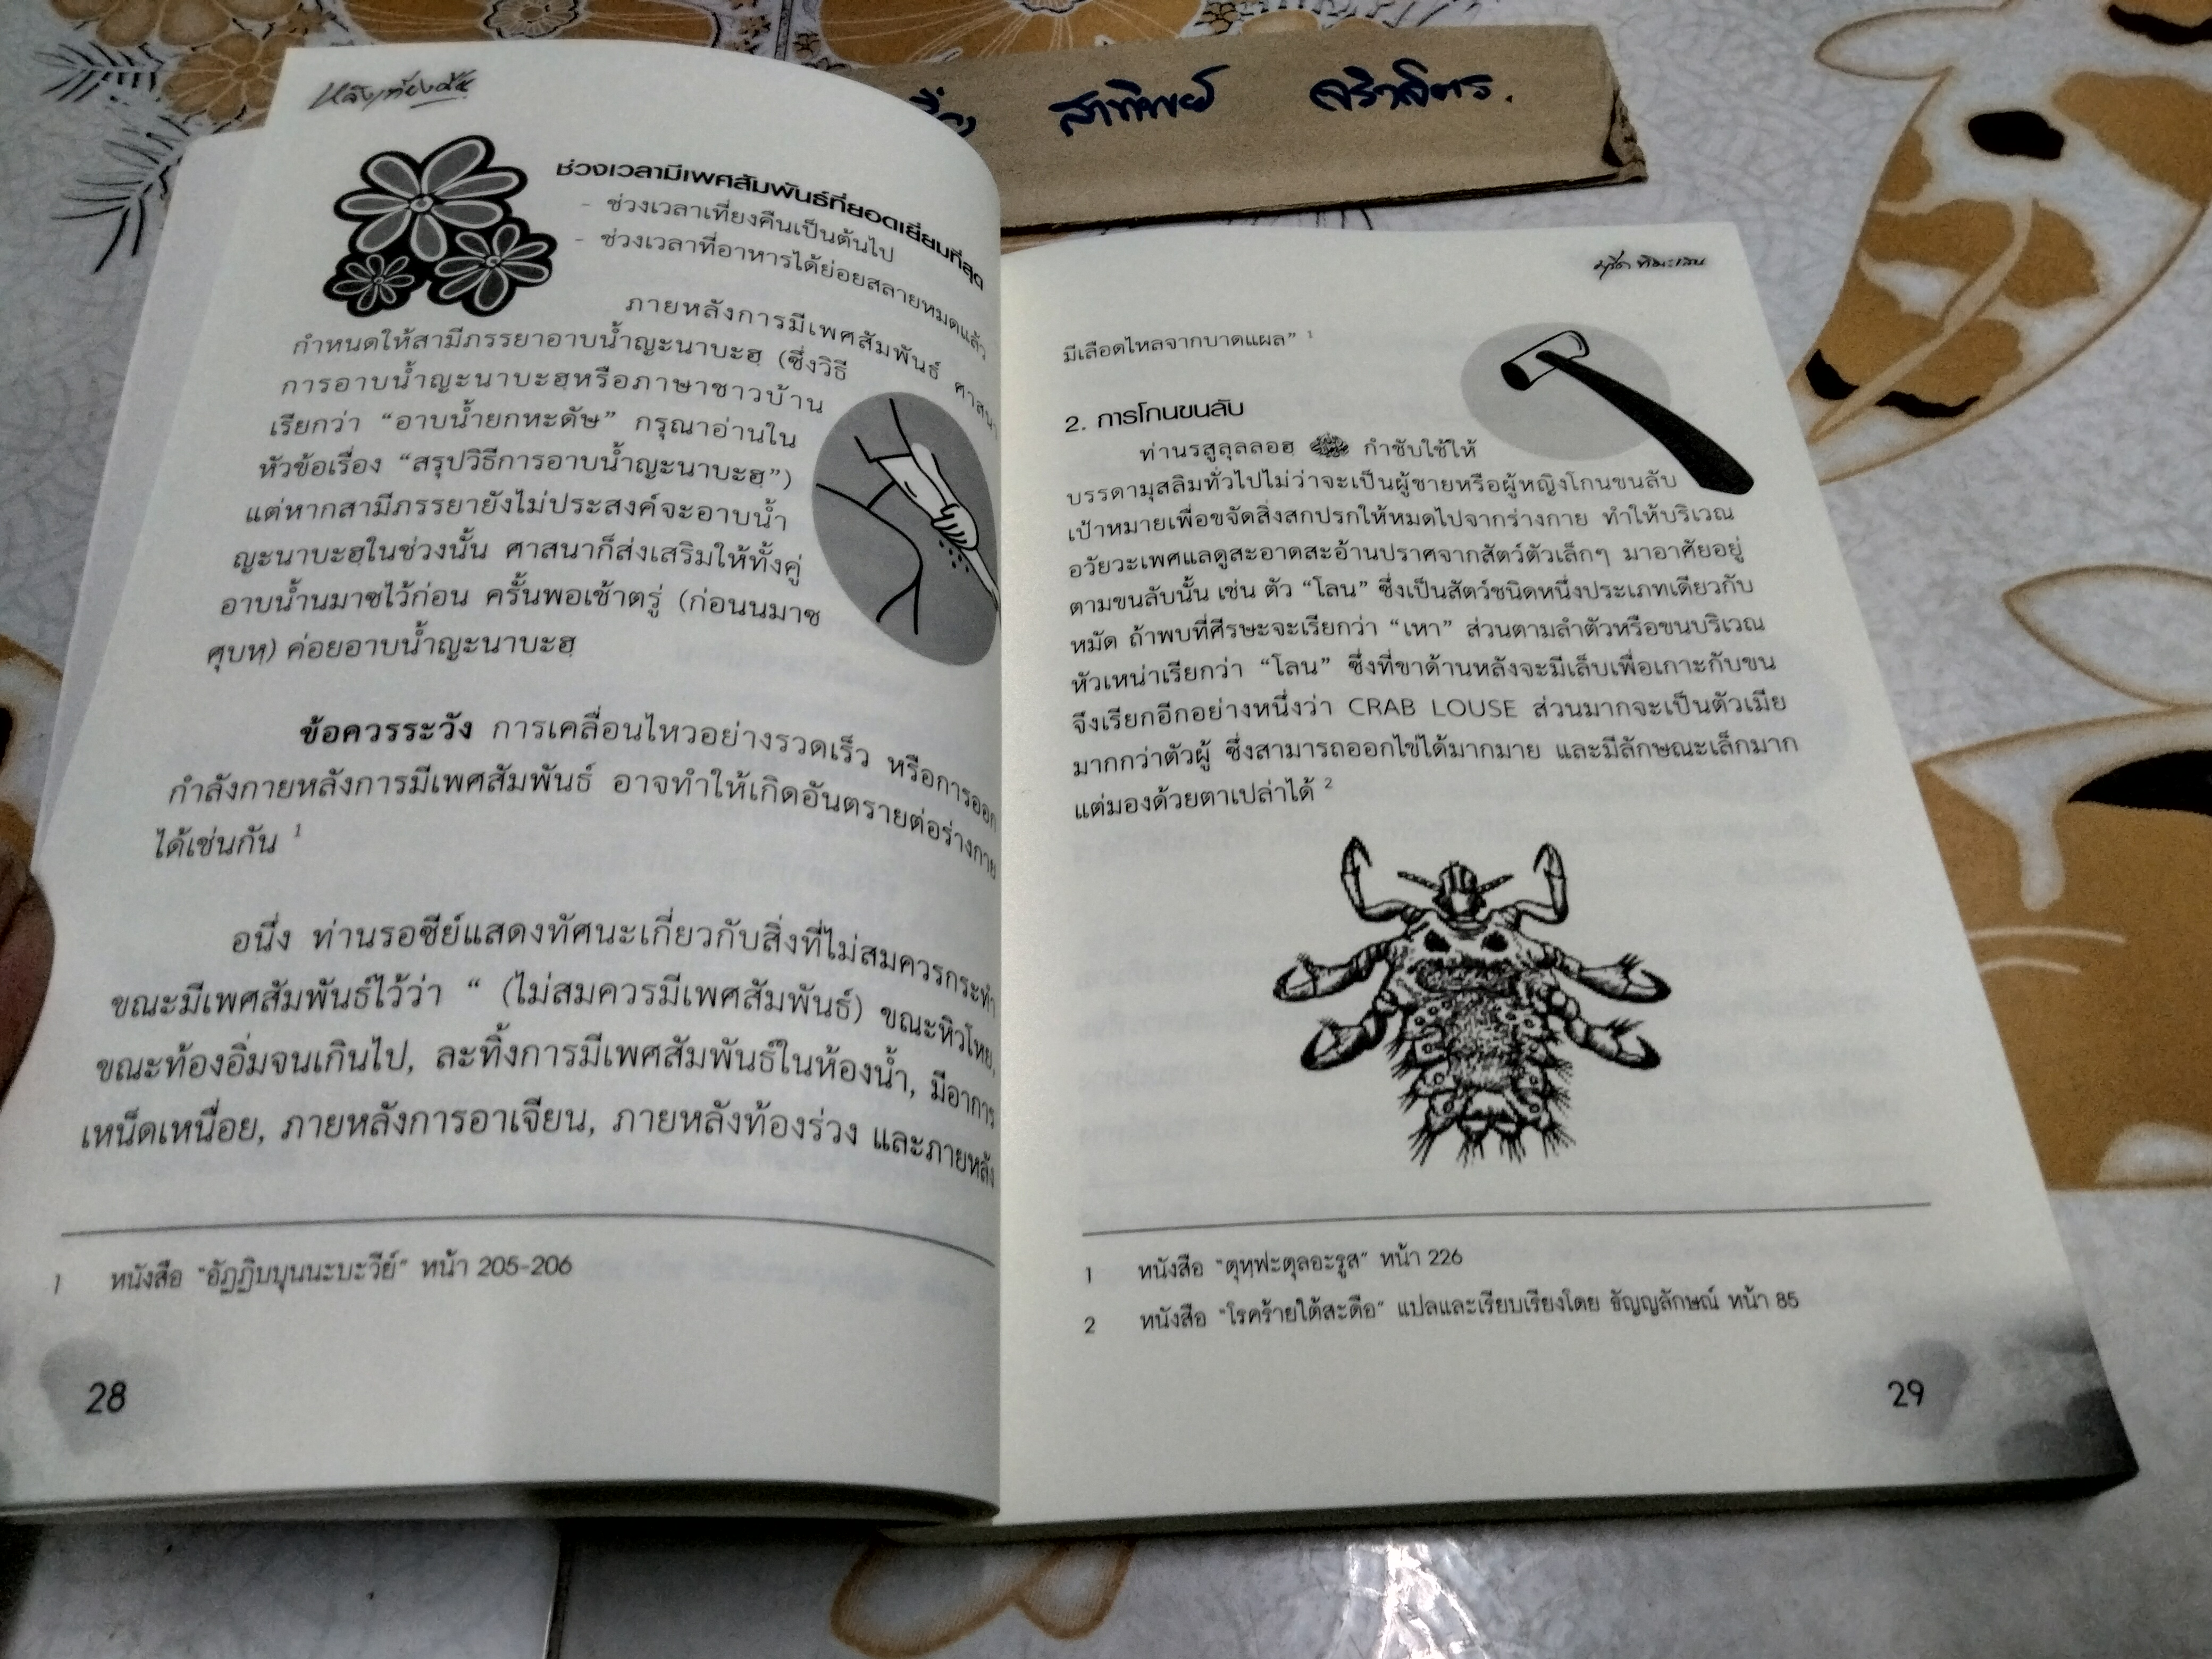 หลังเที่ยงคืน
สาทิพย์
ช่วงเวลามีเพศสัมพันธ์ที่ยอดเยี่ยมที่สุด
- ช่วงเวลาเที่ยงคืนเป็นต้นไป
- ช่วงเวลาที่อาหารได้ย่อยสลายหมดแล้ว
ภายหลังการมีเพศสัมพันธ์ ศาสนา
กำหนดให้สามีภรรยาอาบน้ำญะนาบะฮฺ (ซึ่งวิธี
การอาบน้ำญะนาบะฮฺหรือภาษาชาวบ้าน
เรียกว่า “อาบน้ำยกหะดัษ” กรุณาอ่านใน
หัวข้อเรื่อง “สรุปวิธีการอาบน้ำญะนาบะฮฺ”)
แต่หากสามีภรรยายังไม่ประสงค์จะอาบน้ำ
ญะนาบะฮฺในช่วงนั้น ศาสนาก็ส่งเสริมให้ทั้งคู่
อาบน้ำนมาซไว้ก่อน ครั้นพอเช้าตรู่ (ก่อนนมาซ
ศุบหฺ) ค่อยอาบน้ำญะนาบะฮฺ
ข้อควรระวัง การเคลื่อนไหวอย่างรวดเร็ว หรือการออก
กำลังกายหลังการมีเพศสัมพันธ์ อาจทำให้เกิดอันตรายต่อร่างกาย
ได้เช่นกัน 1
อนึ่ง ท่านรอซีย์แสดงทัศนะเกี่ยวกับสิ่งที่ไม่สมควรกระทำ
ขณะมีเพศสัมพันธ์ไว้ว่า “ (ไม่สมควรมีเพศสัมพันธ์) ขณะหิวโหย,
ขณะท้องอิ่มจนเกินไป, ละทิ้งการมีเพศสัมพันธ์ในห้องน้ำ, มีอาการ
เหน็ดเหนื่อย, ภายหลังการอาเจียน, ภายหลังท้องร่วง และภายหลัง
1 หนังสือ “อัฏฏิบบุนนะบะวีย์” หน้า 205-206
28
มีเลือดไหลจากบาดแผล” 1
2. การโกนขนลับ
ท่านรสูลุลลอฮฺ ﷺ กำชับใช้ให้
บรรดามุสลิมทั่วไปไม่ว่าจะเป็นผู้ชายหรือผู้หญิงโกนขนลับ
เป้าหมายเพื่อขจัดสิ่งสกปรกให้หมดไปจากร่างกาย ทำให้บริเวณ
อวัยวะเพศแลดูสะอาดสะอ้านปราศจากสัตว์ตัวเล็กๆ มาอาศัยอยู่
ตามขนลับนั้น เช่น ตัว “โลน” ซึ่งเป็นสัตว์ชนิดหนึ่งประเภทเดียวกับ
หมัด ถ้าพบที่ศีรษะจะเรียกว่า “เหา” ส่วนตามลำตัวหรือขนบริเวณ
หัวเหน่าเรียกว่า “โลน” ซึ่งที่ขาด้านหลังจะมีเล็บเพื่อเกาะกับขน
จึงเรียกอีกอย่างหนึ่งว่า CRAB LOUSE ส่วนมากจะเป็นตัวเมีย
มากกว่าตัวผู้ ซึ่งสามารถออกไข่ได้มากมาย และมีลักษณะเล็กมาก
แต่มองด้วยตาเปล่าได้ 2
1 หนังสือ “ตุหฺฟะตุลอะรูส” หน้า 226
2 หนังสือ “โรคร้ายใต้สะดือ” แปลและเรียบเรียงโดย ธัญญลักษณ์ หน้า 85
29